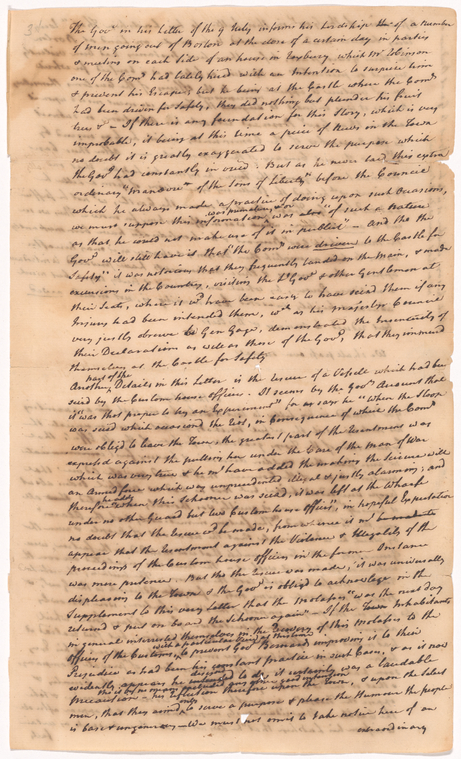 The Govr in his Letter of the 9 July informs his Lordship that of a number
of men going out of Boston at the close of a certain day in parties
& meeting on each side of an house in Roxbury which Mr Robinson
one of the Comrs had lately hired with an Intention to surprise him
& prevent his Escape; but he being at the Castle where the Comrs
had been driven for safety, they did nothing but plunder his fruit
trees &c — If there is any foundation for this story, which is very
improbable, it being at this time a piece of News in the Town
no doubt it is greatly exaggerated to serve the purpose which
the Govr had constantly in view. But as he never laid this extra
ordinary "manœuvre of the Sons of Liberty" before the Council
which he always made a practice of doing upon such Occasions,
we must suppose this information was also "of such a Nature
as that he could not make use of it in publick" — And tho the
Govr will still have it that the Comrs were driven to the Castle for
Safety" it was notorious that they frequently landed on the Main, & made
excursions in the Country, visiting the Lt Govr & other Gentlemen at
their Seats, where it wd have been easy to have seizd them if any
Injury had been intended them, wch as his majestys Council
very justly observe to Gen Gage, demonstrated the Insincerity of
their Declarations as well as those of the Govr, that they immurd
themselves at the Castle for Safety
part of the
Another Details in this Letter is the rescue of a Vessell which had been
seizd by the Custom house officers. It seems by the Govrs Account that
it was that proper to try an Experiment, for as says he "When the Sloop
was seizd which occasiond the Riot, in Consequence of which the Comrs
were obligd to leave the Town, the greatest part of the Resentment was
expressd against the putting her under the Care of the Man of War
which was very true & he mt have added the making the seizure with
an Armed force which was unprecedented illegal & justly alarming; and
therefore when this Schooner was seizd, it was left at the Wharfe
under no other Guard but two Custom house officers", in hopeful Expectation
no doubt that the rescue wd be made, from whence it mt be made to
appear that the Resentment against the Violence & Illegality of the
proceedings of the Custom house officers in the former Instance
was mere pretence. But tho the rescue was made, it was universally
displeasing to the Town & the Govr is obligd to acknowlege in the
Supplement to this very letter that the Molasses "was the next day
returnd & put on board the Schooner again" — If the Town Inhabitants
in general interested themselves in the recovery of this Molasses to the
officers of the Customs, to prevent Govr Bernards improving it to their
Prejudice as had been his constant practice in such Cases, & as it now
evidently appears he to do, it certainly was a laudable
Precaution — his therefore upon the Town, & upon the select
men, that they aimd to serve a purpose & please the Humour the people
is base & ungenerous — We must not omit to take notice here of an
extraordinary